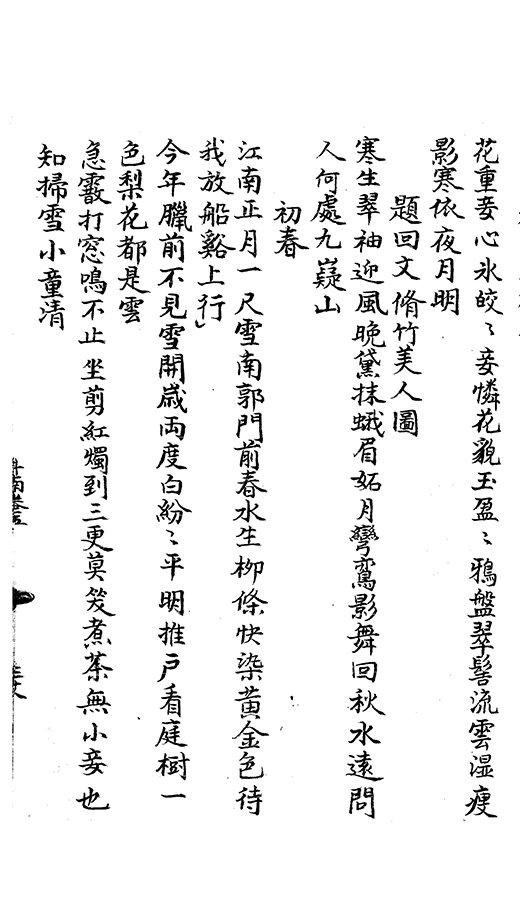 花重妾心氷皎〻妾憐花貌玉盈〻鴉盤翠髻流雲湿痩
影寒依夜月明
題回文脩竹美人圖
寒生翠袖迎風晩黛抹蛾眉妬月彎鸞影舞回秋水遠問
人何處九嶷山
初春
江南正月一尺雪南郭門前春水生柳條快染黄金色待
我放船谿上行」
今年臘前不見雪開歳両度白紛〻平明推戸看庭樹一
色梨花都是雲
急霰打窓鳴不止坐剪紅燭到三更莫笑煮茶無小妾也
知掃雪小童清